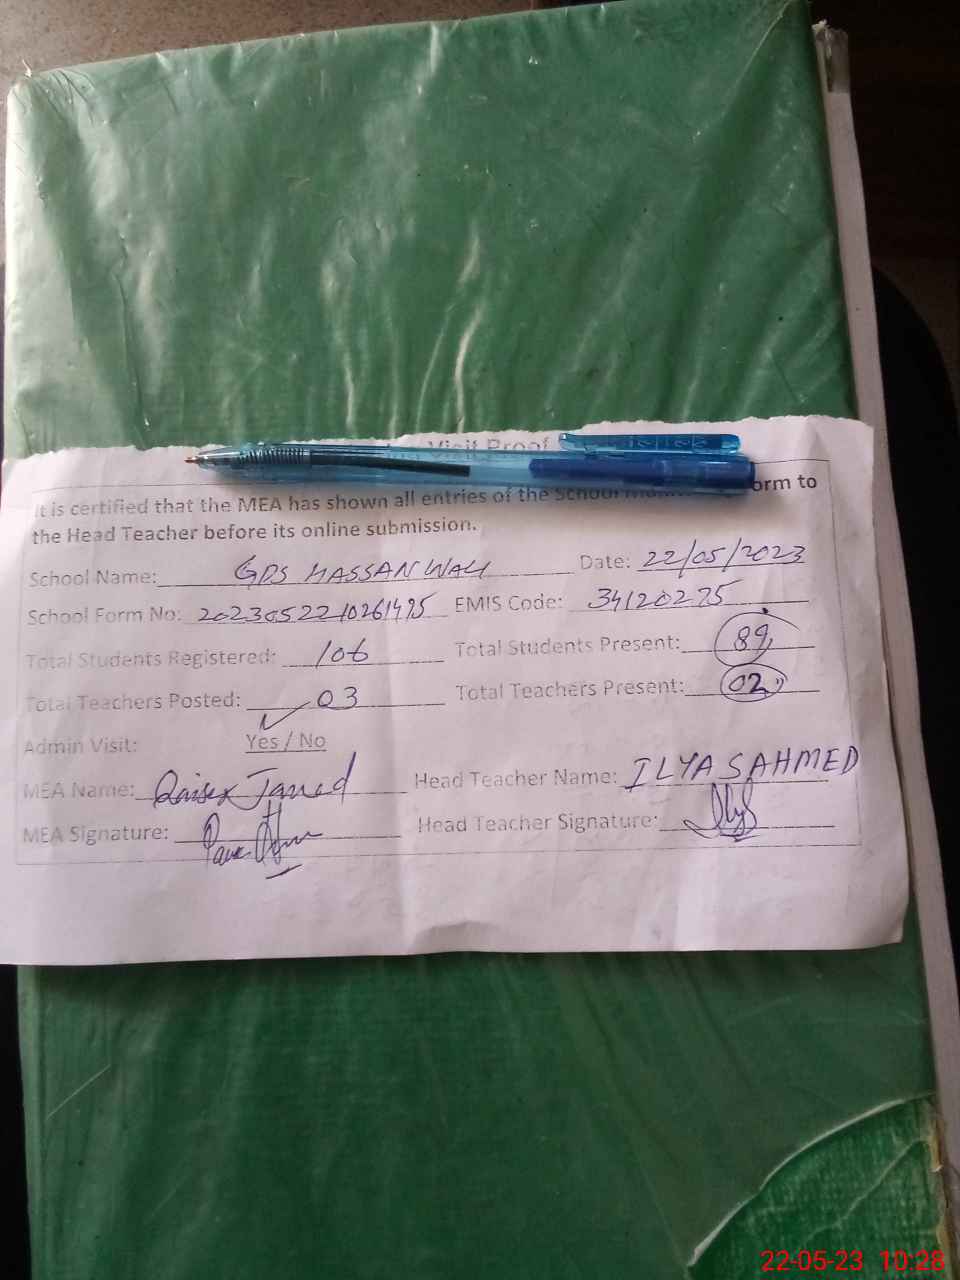 Visit Proof
It is certified that the MEA has shown all entries of the School orm to
the Head Teacher before its online submission.
School Name: GPS HASSAN WALI Date: 22/05/2023
School Form No: 2023052210261495 EMIS Code: 34120275
Total Students Registered: 106 Total Students Present: 89
Total Teachers Posted: 03 Total Teachers Present: 02
Admin Visit: Yes / No
MEA Name: Qaiser Javed Head Teacher Name: ILYAS AHMED
MEA Signature: Head Teacher Signature:
22-05-23 10:28